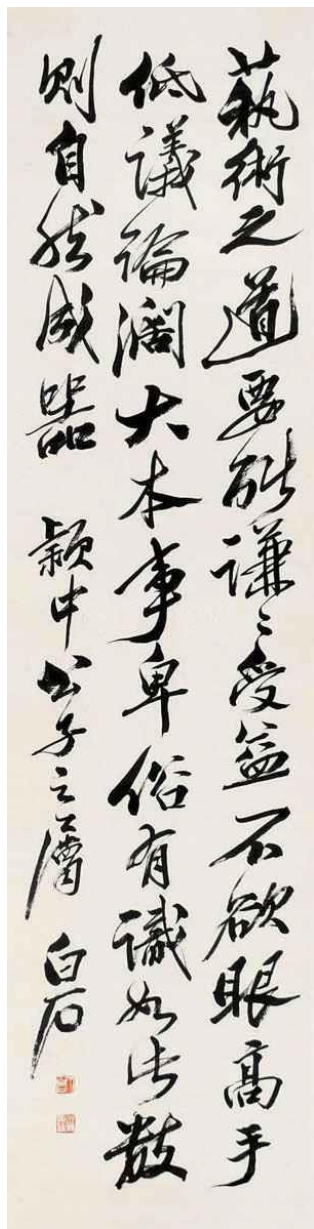 藝術之道要能謙〻受益不欲眼高手
低議論濶大本事卑俗有識如此數
則自然成器 穎中公子之屬 白石